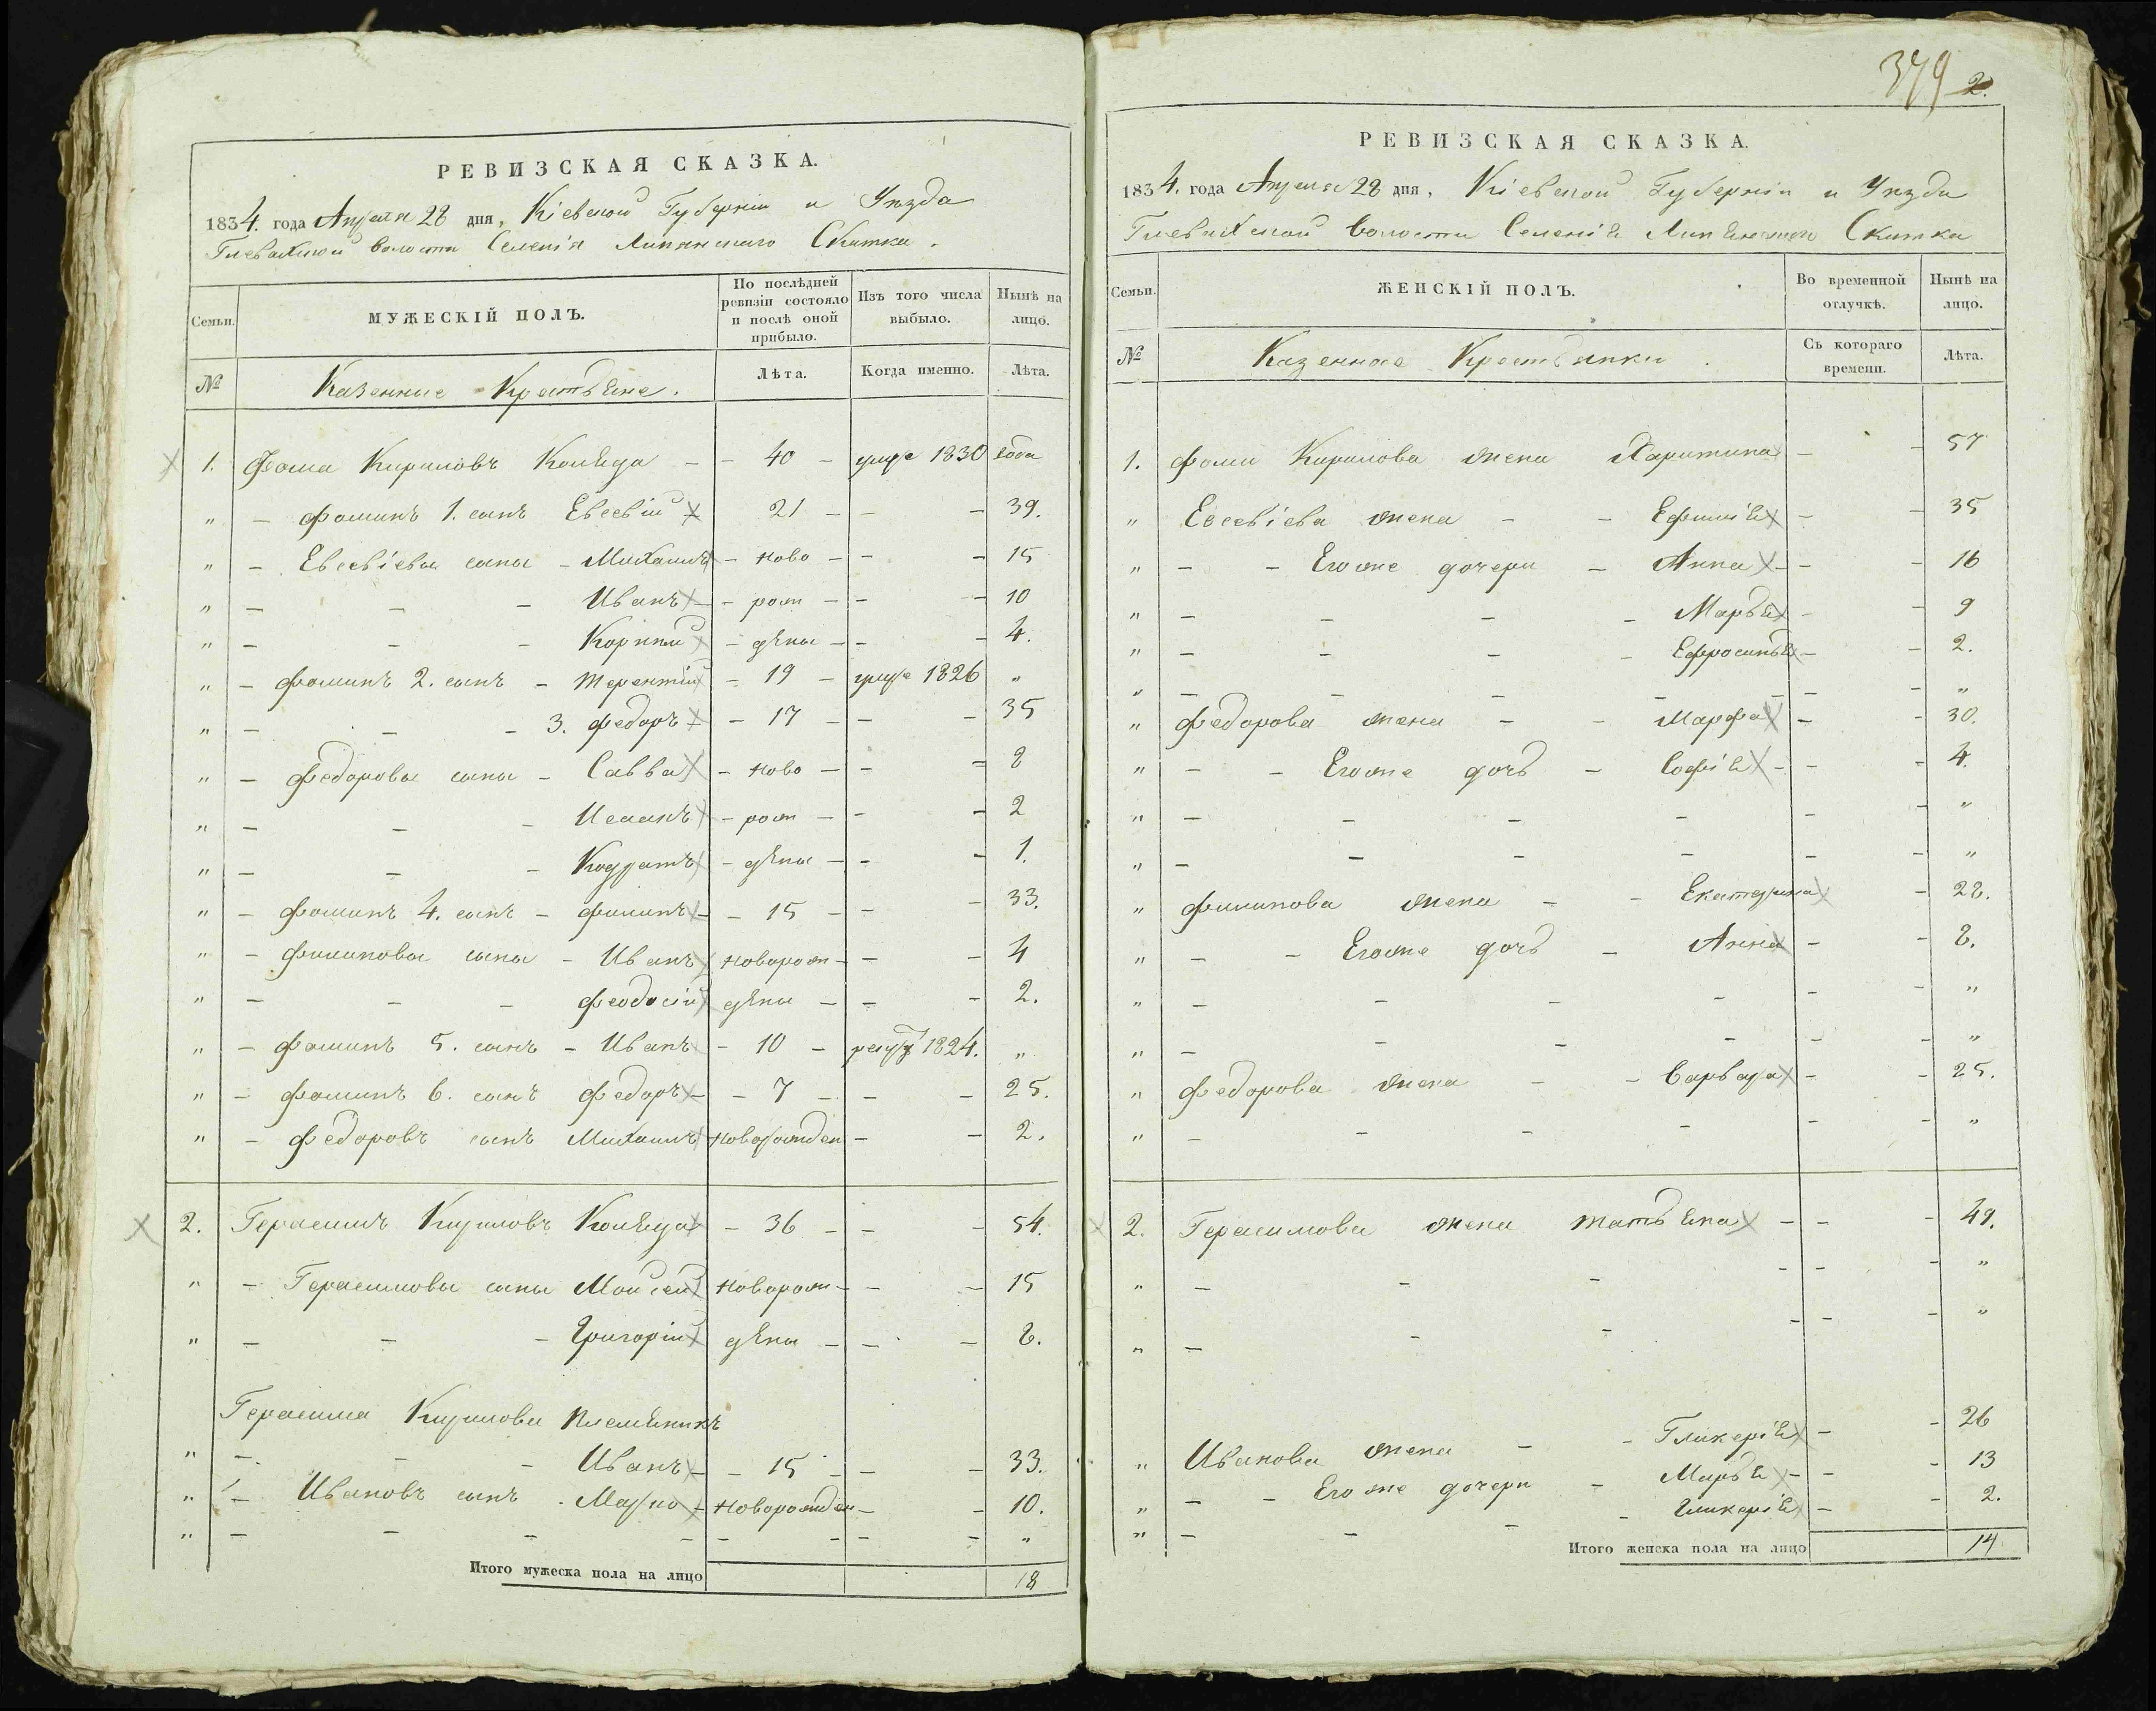 РЕВИЗСКАЯ СКАЗКА.
1834. года Апреля 28 дня, Кіевской Губерніи и Уѣзда
Глевахской волости Селенія Липянскаго Скитка.
Семьи.
МУЖЕСКІЙ ПОЛЪ.
По послѣдней ревизіи состояло и послѣ оной прибыло.
Изъ того числа выбыло.
Нынѣ на лицо.
№
Казенные Крестьяне.
Лѣта.
Когда именно.
Лѣта.
1. Фома Кириловъ Коляда - - 40 - умре 1830 года
" - Фоминъ 1. сынъ Евсевій 21 - - - 39.
" - Евсевіевы сыны - Михаилъ - ново - - - 15
" - - - Иванъ - рож - - - 10
" - - - Корнѣй - дѣны - - - 4.
" - Фоминъ 2. сынъ - Терентій - 19 - умре 1826 "
" - - - 3. Федоръ - 17 - - - 35
" - Федоровы сыны - Савва - ново - - - 8
" - - - Исаакъ - рож - - - 2
" - - - Кодратъ - дѣны - - - 1.
" - Фоминъ 4. сынъ - Филипъ - 15 - - - 33.
" - Филиповы сыны - Иванъ новорож - - - 4
" - - - Феодосій дѣны - - - 2.
" - Фоминъ 5. сынъ - Иванъ - 10 - 1824. "
" - Фоминъ 6. сынъ Федоръ - 7 - - - 25.
" - Федоровъ сынъ Михаилъ новорожден - - 2.
2. Герасимъ Кириловъ Коляда - 36 - - - 54.
" - Герасимовы сыны Мойсей новорож - - - 15
" - - - Григорій дѣны - - - 8.
Герасима Кирилова племяникъ
" - - - Иванъ - 15 - - - 33.
" - Ивановъ сынъ - Марко - новорожден - - 10.
" - - - - - - - - "
Итого мужеска пола на лицо 18
379 2.
РЕВИЗСКАЯ СКАЗКА.
1834. года Апреля 28 дня, Кіевской Губерніи и Уѣзда
Глевахской волости Селенія Липянскаго Скитка
Семьи.
ЖЕНСКІЙ ПОЛЪ.
Во временной отлучкѣ.
Нынѣ на лицо.
№
Казенные Крестьянки.
Съ котораго времени.
Лѣта.
1. Фомы Кирилова жена Харитина - - 57
" Евсевіева жена - - Ефимія - - 35
" - - Егоже дочери - Анна - - 16
" - - - - Марья - - 9
" - - - - Ефросинья - - 2.
" - - - - - - - "
" Федорова жена - - Марфа - - 30.
" - - Егоже дочь - Софія - - 4.
" - - - - - - "
" - - - - - - "
" Филипова жена - - Екатерина - 28.
" - - Егоже дочь - Анна - - 8.
" - - - - - - "
" - - - - - - "
" Федорова жена - - Варвара - - 25.
" - - - - - - "
2. Герасимова жена Татьяна - - - 49.
" - - - - - - "
" - - - - - - "
" Иванова жена - - Гликерія - - 26
" - - Егоже дочери - Марья - - 13
" - - - - Гликерія - - 2.
Итого женска пола на лицо 14